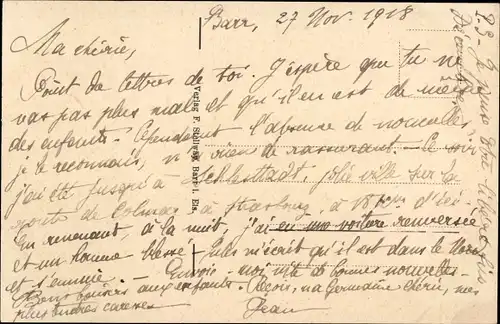 Barr, 27 Nov. 1918
Ma chérie,
Point de lettres de toi. J'espère que tu ne
vas pas plus mal et qu'il en est de même
des enfants. Cependant l'absence de nouvelles
je le reconnais, n'a rien de rassurant - Ce soir
j'ai été jusqu'à Schlestadt, jolie ville sur la
route de Colmar à Strasbourg, à 18 km d'ici.
En revenant, à la nuit, j'ai vu une voiture renversée
et un homme blessé. - m'écrit qu'il est dans le Nord
et s'ennuie. - Envoie-moi vite de bonnes nouvelles.
Bons baisers aux enfants. Reçois, ma Germaine chérie, mes
plus tendres caresses
Jean
P.S. - Je
Verlag F. Barr i. Els.